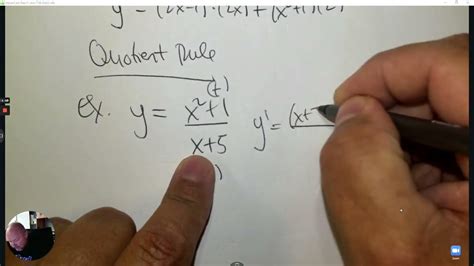 y = (2x-1)·(2x)+(x²+1)(2)
Quotient Rule
(t)
ex. y = x²+1 y' = (x+
x+5
)